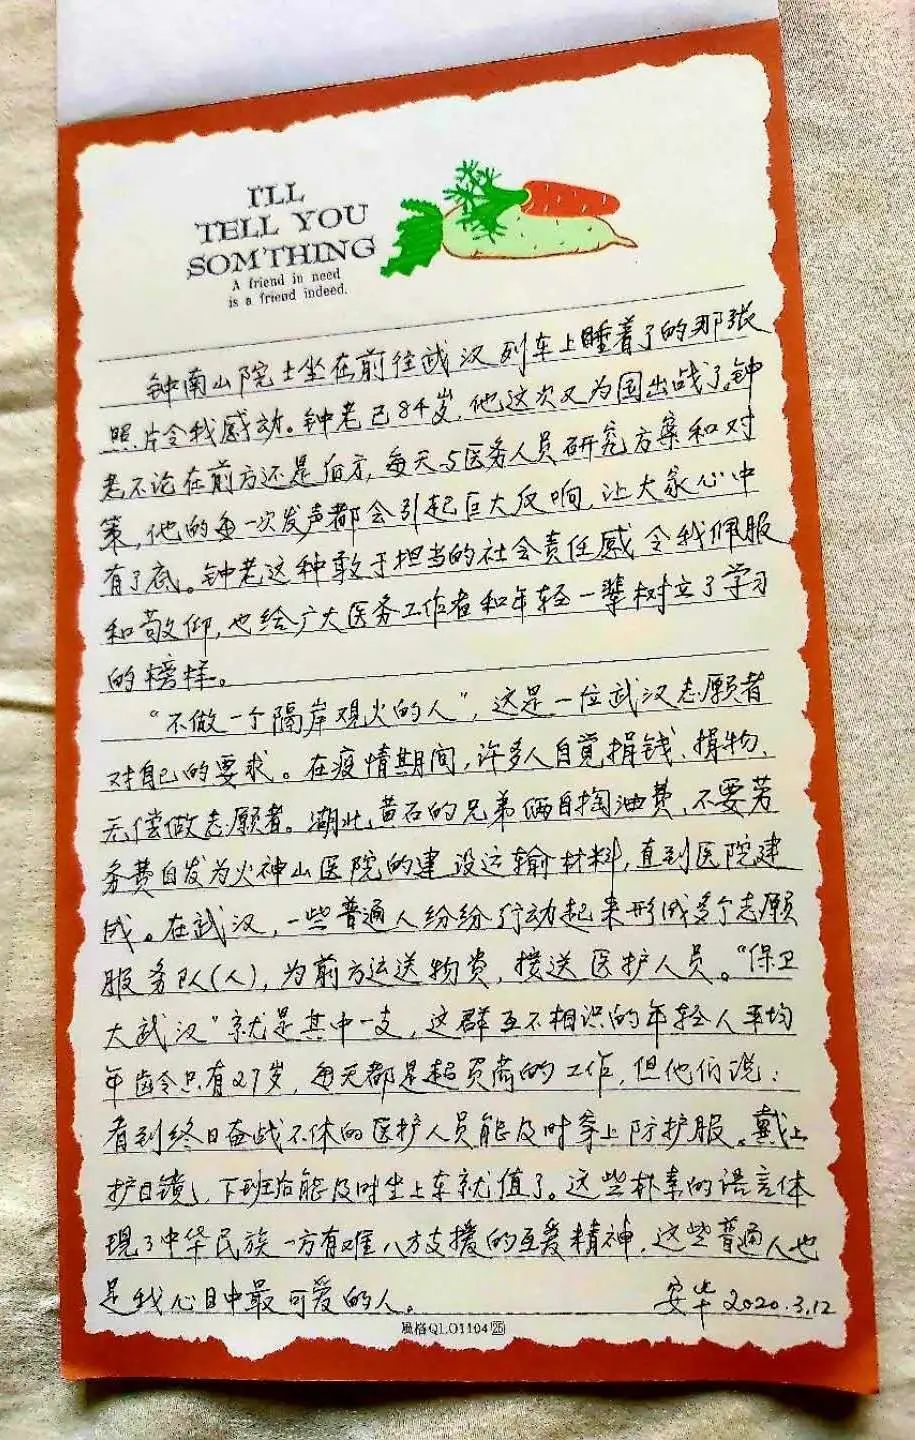 I'LL
TELL YOU
SOM'THING
A friend in need
is a friend indeed.
钟南山院士坐在前往武汉列车上睡着了的那张
照片令我感动。钟老已84岁,他这次又为国出战了。钟
老不论在前方还是后方,每天与医务人员研究方案和对
策,他的每一次发声都会引起巨大反响,让大家心中
有了底。钟老这种敢于担当的社会责任感,令我佩服
和敬仰,也给广大医务工作者和年轻一辈树立了学习
的榜样。
“不做一个隔岸观火的人”,这是一位武汉志愿者
对自己的要求。在疫情期间,许多人自觉捐钱、捐物、
无偿做志愿者。湖北黄石的兄弟俩自掏油费,不要劳
务费自发为火神山医院的建设运输材料,直到医院建
成。在武汉,一些普通人纷纷行动起来形成多个志愿
服务队(人),为前方运送物资,接送医护人员。“保卫
大武汉”就是其中一支,这群互不相识的年轻人平均
年龄只有27岁,每天都是超负荷的工作,但他们说:
看到终日奋战不休的医护人员能及时穿上防护服、戴上
护目镜,下班后能及时坐上车就值了。这些朴素的语言体
现了中华民族一方有难八方支援的互爱精神,这些普通人也
是我心目中最可爱的人。
安华 2020.3.12
風格QL01104 25